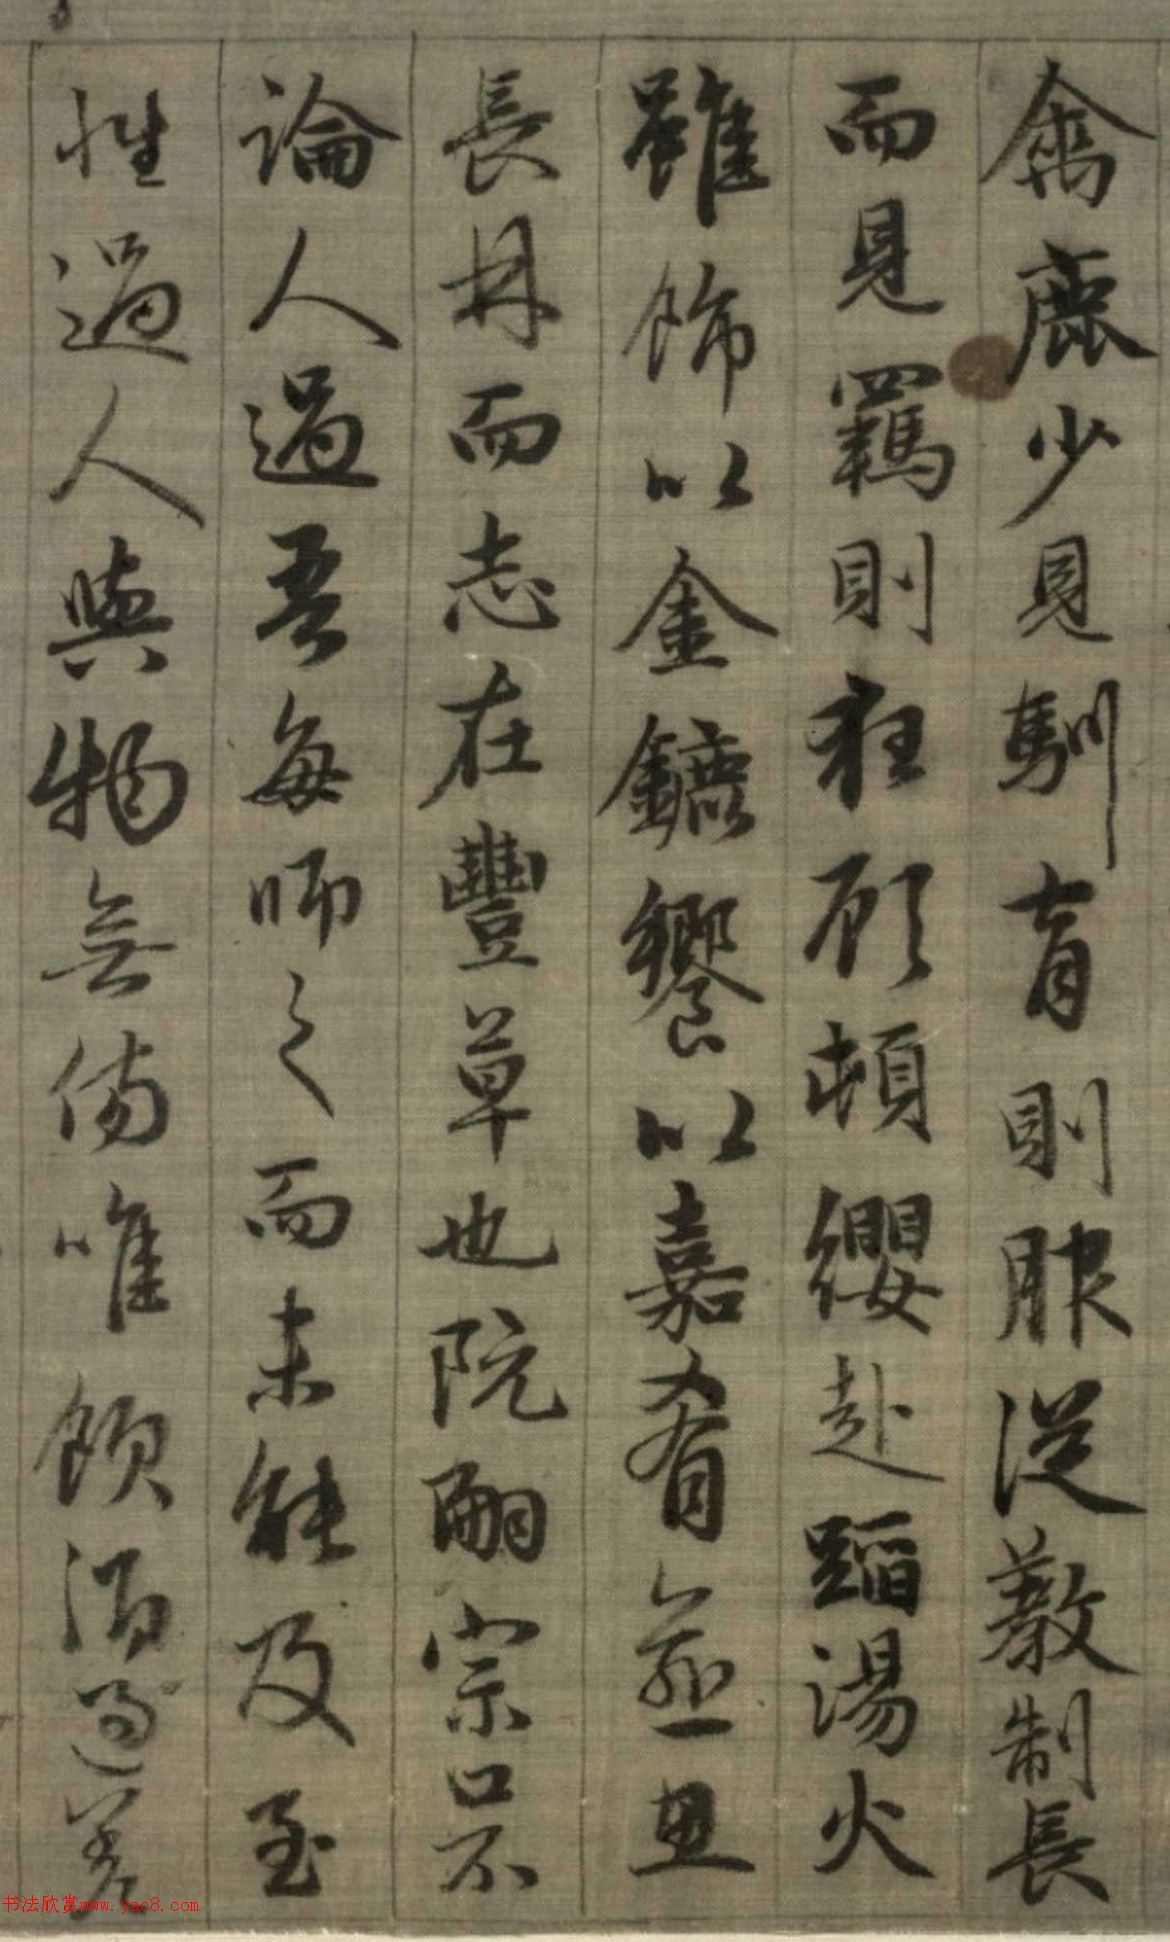 禽鹿少見馴育則服從教制長
而見羈則狂顧頓纓赴蹈湯火
雖飾以金鑣饗以嘉肴逾思
長林而志在豐草也阮嗣宗口不
論人過吾每師之而未能及至
性過人與物無傷唯飲酒過差
书法欣赏www.yac8.com